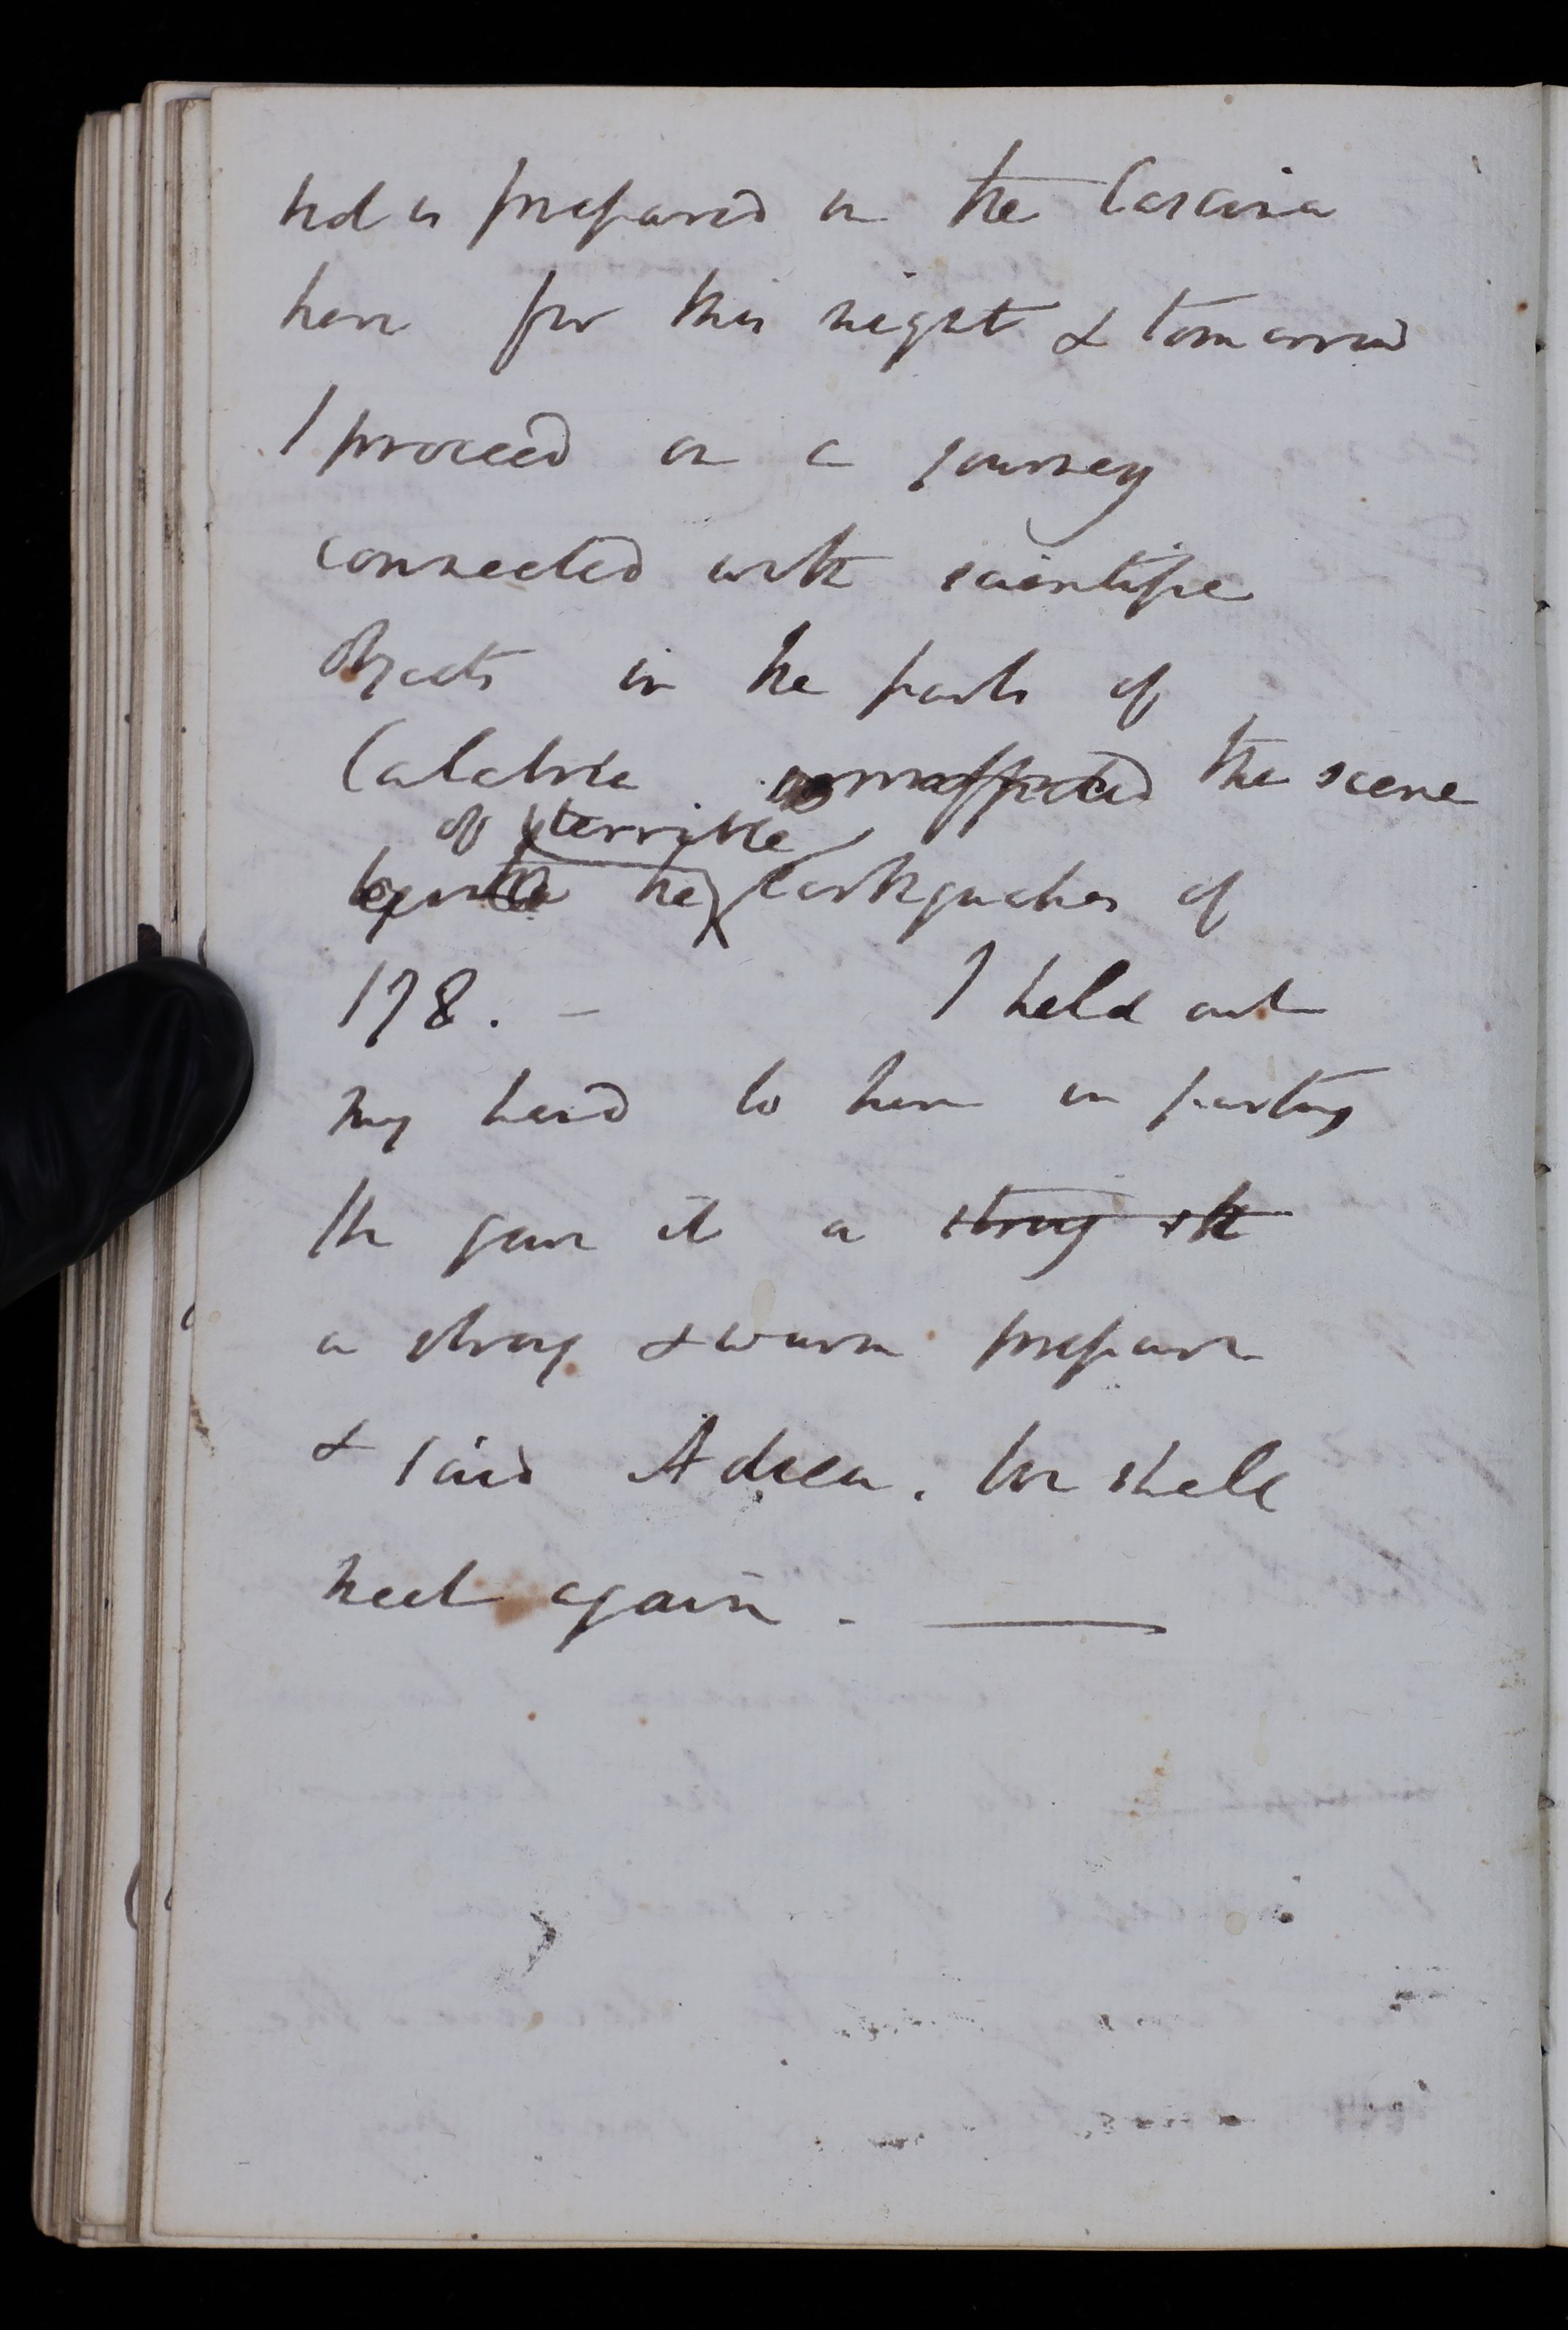 bed is prepared in the Cascina
here for this night & tomorrow
I proceed on a journey
connected with scientific
objects in the parts of
Calabria affected the scene
of terrible
by the the earthquakes of
178. - I held out
my hand to him in parting
He gave it a strong sh
a strong & warm pressure
& said Adieu. We shall
meet again. ——